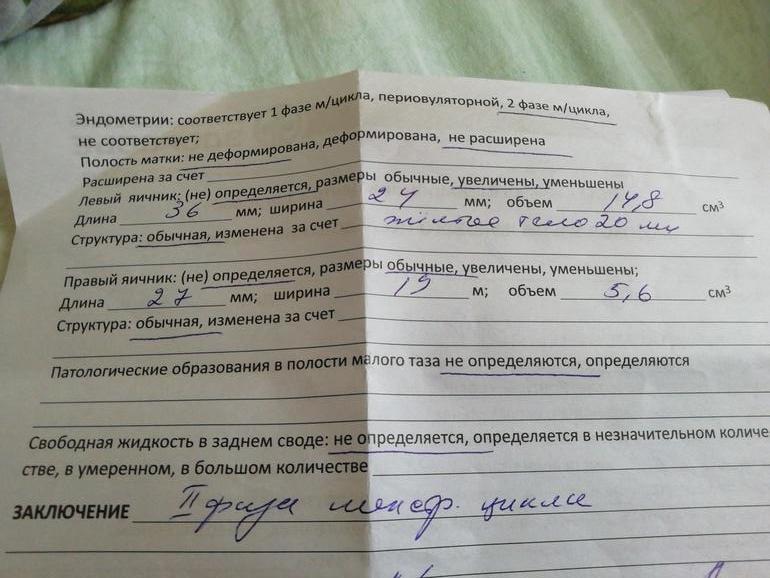 Эндометрии: соответствует 1 фазе м/цикла, периовуляторной, 2 фазе м/цикла,
не соответствует;
Полость матки: не деформирована, деформирована, не расширена
Расширена за счет
Левый яичник: (не) определяется, размеры обычные, увеличены, уменьшены
Длина 36 мм; ширина 24 мм; объем 14,8 см³
Структура: обычная, изменена за счет жёлтое тело 20 мм
Правый яичник: (не) определяется, размеры обычные, увеличены, уменьшены;
Длина 27 мм; ширина 19 м; объем 5,6 см³
Структура: обычная, изменена за счет
Патологические образования в полости малого таза не определяются, определяются
Свободная жидкость в заднем своде: не определяется, определяется в незначительном количе-
стве, в умеренном, в большом количестве
ЗАКЛЮЧЕНИЕ II фаза менстр. цикла